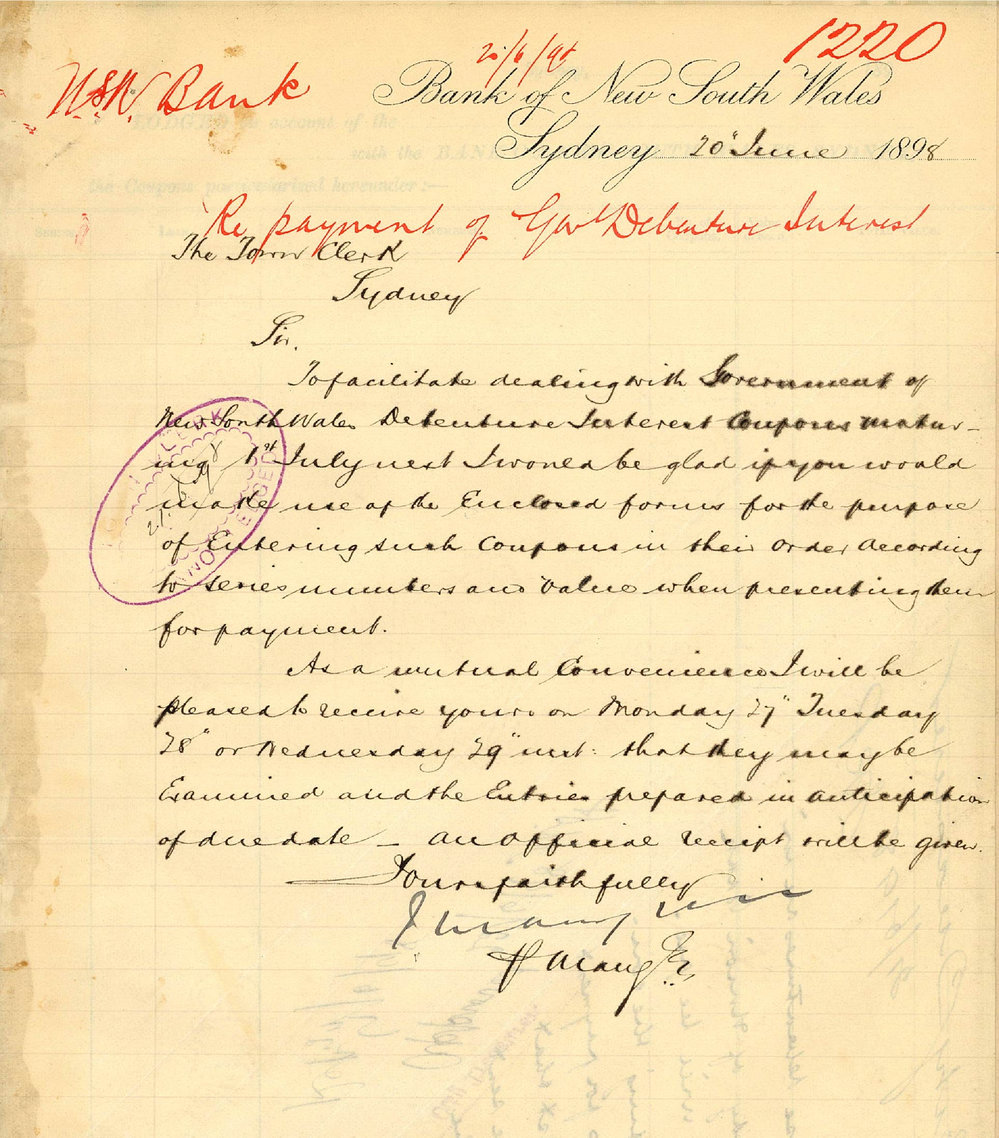 20/6/98
1220
N.S.W. Bank
Bank of New South Wales
Sydney 20" June 1898
LODGED account of the
with the BANK
the Coupons particularised hereunder:—
Re payment of Govt Debenture Interest
The Town Clerk
Sydney
Sir,
To facilitate dealing with Government of
New South Wales Debenture Interest Coupons matur-
ing 1st July next I would be glad if you would
make use of the Enclosed forms for the purpose
of Entering such Coupons in their order according
to series numbers and value when presenting them
for payment.
As a mutual Convenience I will be
pleased to receive yours on Monday 27" Tuesday
28" or Wednesday 29" inst: that they may be
Examined and the Entries prepared in anticipation
of due date _ an official receipt will be given.
Yours faithfully